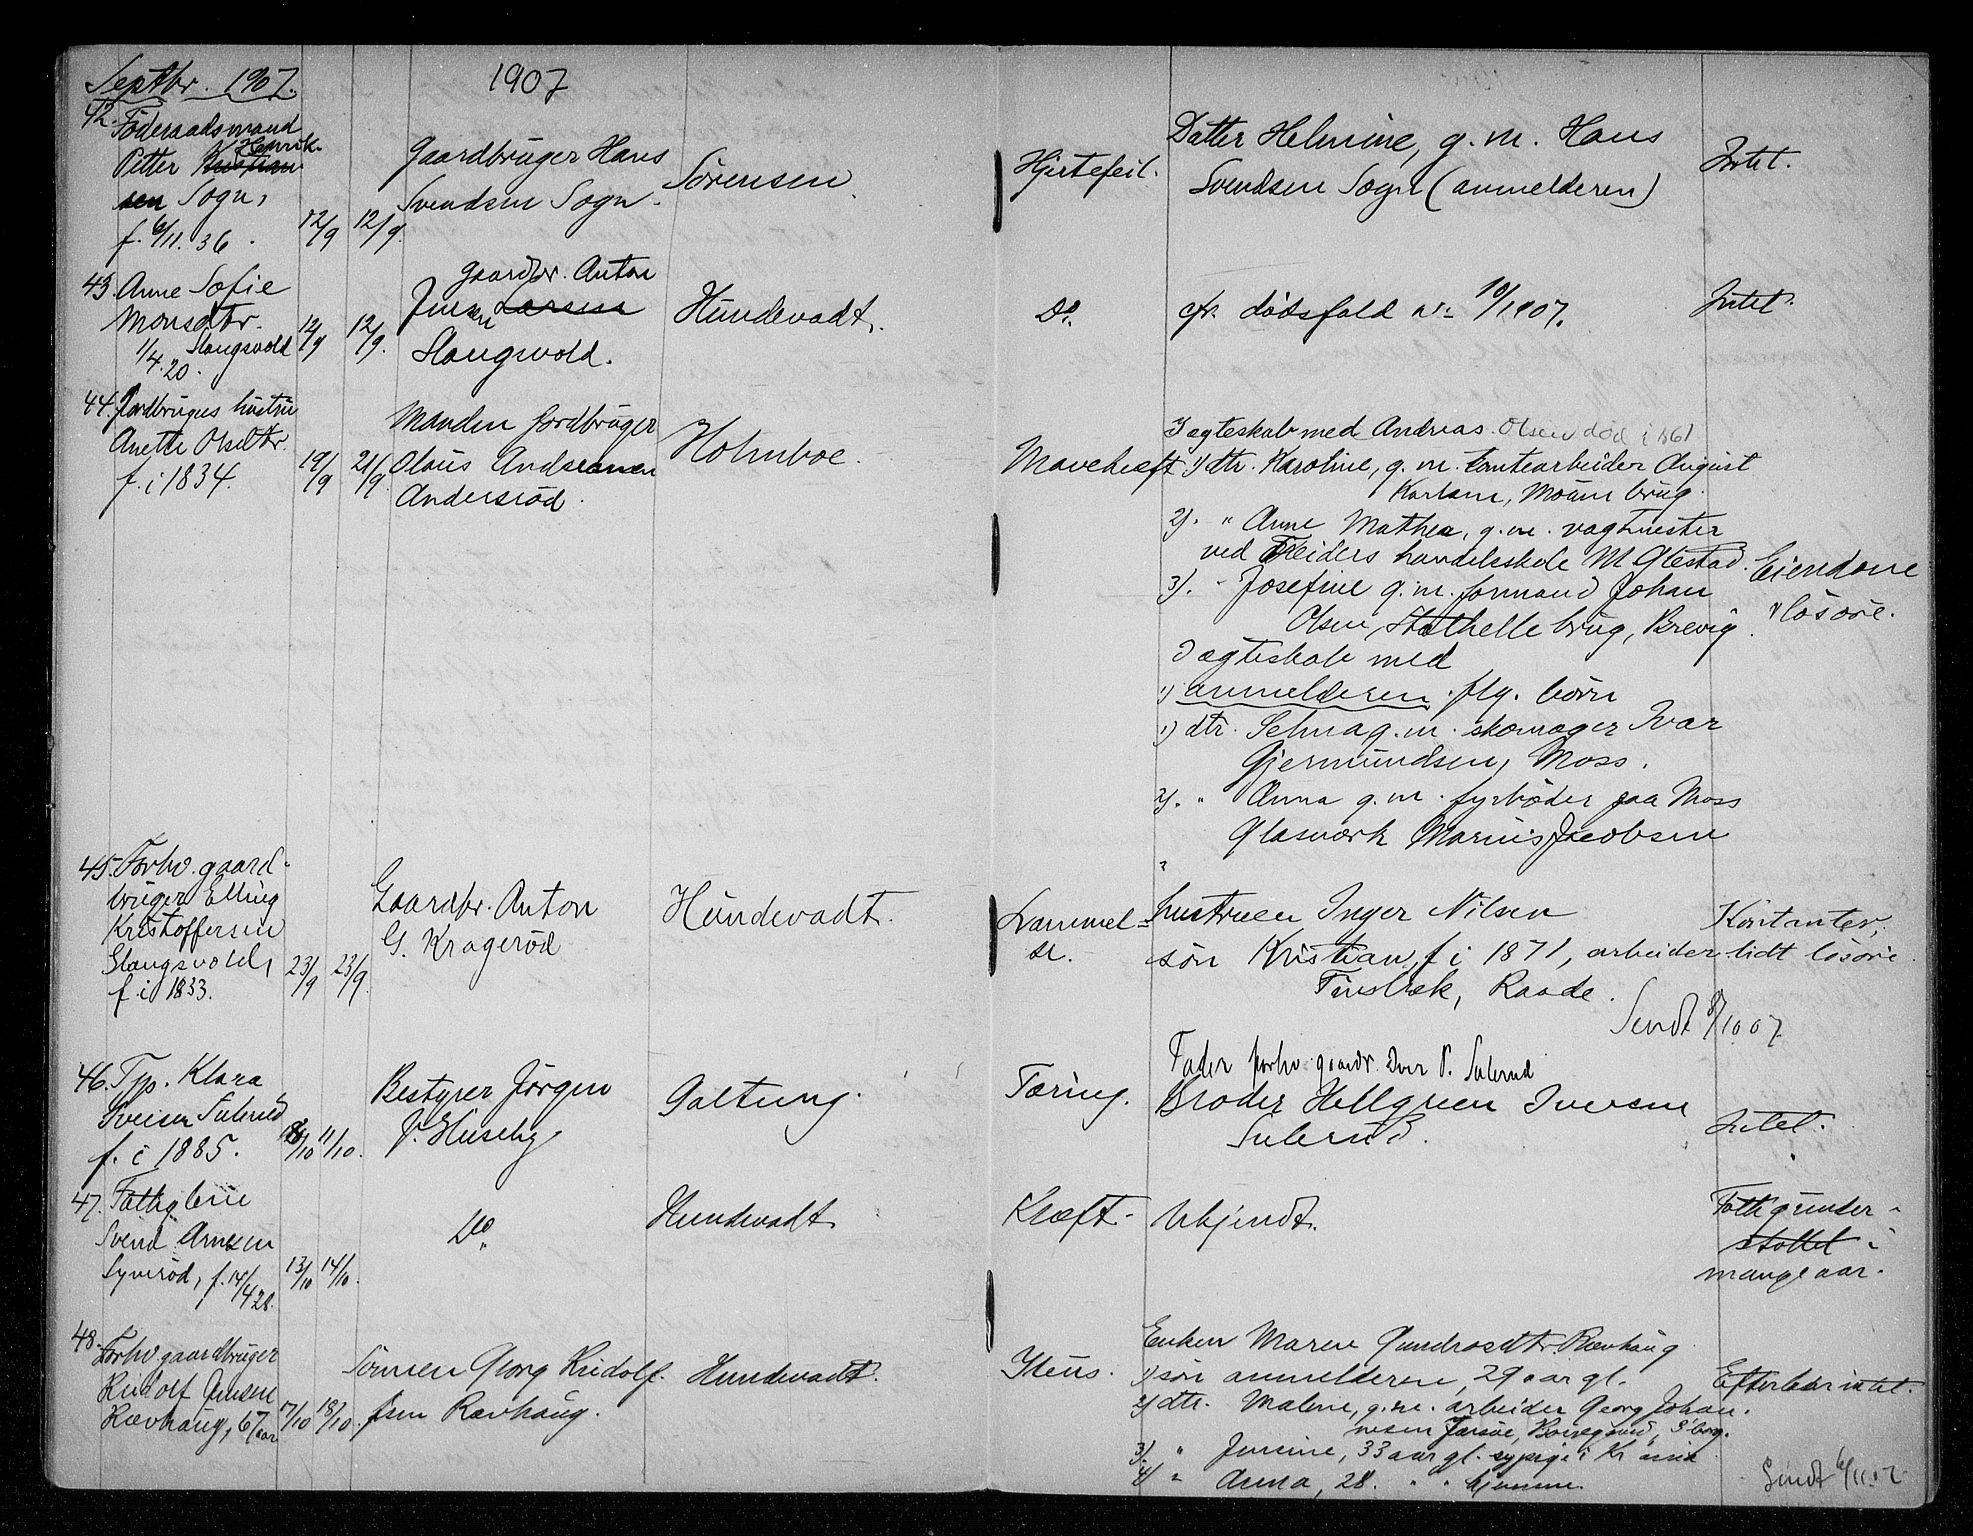 Septbr. 1907.
1907
42. Föderaadsmand
Petter Henrik-
sen Sogn,
f. 6/11. 36.
12/9
12/9.
Gaardbruger Hans
Svendsen Sogn.
Sörensen
Hjertefeil.
Datter Helmine, g. m. Hans
Svendsen Sogn (anmelderen)
Intet.
43. Anne Sofie
Monsdtr.
Slangsvold
1/4. 20.
12/9
12/9.
Gaardbr. Anton
Jensen Larsen
Slangsvold.
Hundevadt.
Do.
cfr. dödsfald nr. 10/1907.
Intet.
44. Jordbrugers hustru
Anette Olsdtr.
f. i 1834.
19/9
21/9
Manden jordbruger
Olaus Andreassen
Andersröd.
Holmboe.
Mavekræft
I ægteskab med Andreas Olsen död i 1861
1) dtr. Karoline, g. m. tomtearbeider August
Karlsen, Moum brug.
2). " Anne Mathea, g. m. vagtmester
ved Treiders handelsskole M Glestad.
3). " Josefine g. m. formand Johan
Olsen, Stathelle brug, Brevig.
I ægteskab med
1) anmelderen flg. börn
1) dtr. Selma g. m. skomager Ivar
Gjermundsen, Moss.
2). " Anna g. m. fyrböder paa Moss
Glasværk Marius Jacobsen
Eiendom
løsöre.
45. Forhv. gaard-
bruger Elling
Kristoffersen
Slangsvold,
f. i 1833.
23/9
23/9.
Gaardbr. Anton
G. Krageröd
Hundevadt.
Lammel-
se.
hustruen Inger Nilsen
sön Kristian, f. i 1871, arbeider
Tinsbæk, Raade.
Kontanter,
lidt lösöre.
Sendt 8/10 07
46. Tp. Klara
Iversen Sulerud
f. i 1885.
/10
11/10.
Bestyrer Jörgen
P. Huseby
Galtung.
Tæring.
Fader forhv. gaardbr. Iver P. Sulerud
Broder Hellgreen Iversen
Sulerud.
Intet.
47. Fattiglem
Svend Arnesen
Syveröd, f. 14/4 28.
13/10
14/10.
Do
Hundevadt
Kræft.
Ubkjendt.
Fattigunder-
stöttet i
mange aar.
48. Forhv. gaardbruger
Rudolf Jensen
Ravnhaug, 67 aar
17/10
18/10.
Sönnen Georg Rudolf-
sen Ravnhaug.
Hundevadt.
Ileus.
Enken Maren Gundrosdtr. Ravnhaug
1) sön anmelderen, 29 aar gl.
2) dtr. Maline, g. m. arbeider Georg Johan-
nesen, Borregaard, S'borg.
3) " Jensine, 33 aar gl. sypige i Kr.ania
4) " Anna, 28. " " hjemme.
Efterlader intet.
Sendt 6/11 07